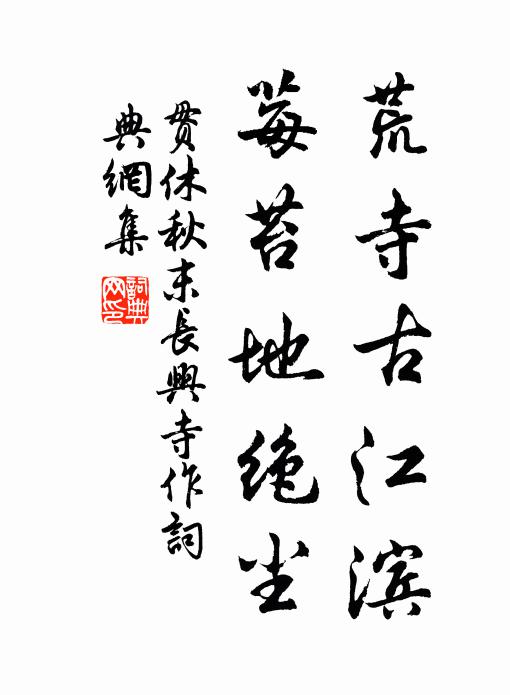 荒寺古江滨
莓苔地绝尘
贯休秋末長興寺作詞
典網集
詞典网印